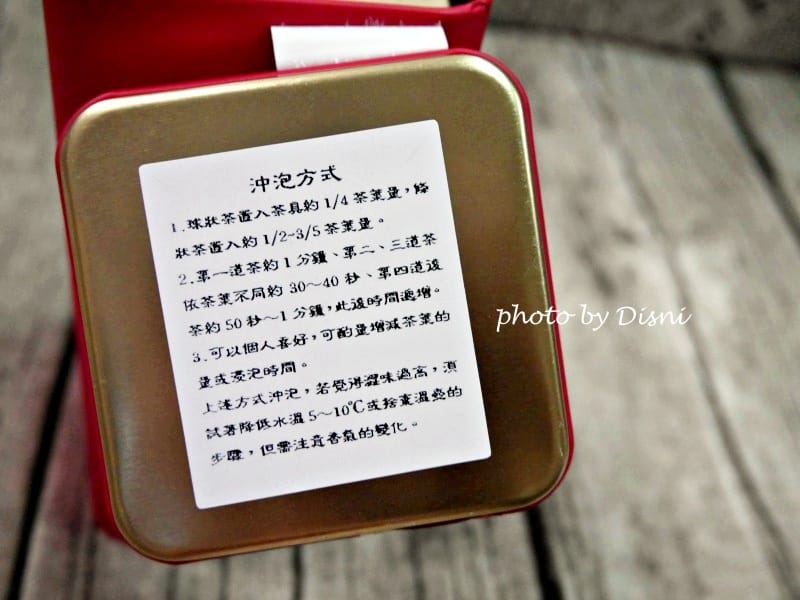 沖泡方式
1.球狀茶置入茶具約1/4茶葉量，條
狀茶置入約1/2~3/5茶葉量。
2.第一道茶約1分鐘、第二、三道茶
依茶葉不同約30～40秒、第四道後
茶約50秒～1分鐘，此後時間遞增。
3.可以個人喜好，可酌量增減茶葉的
量或浸泡時間。
上述方式沖泡，若覺得澀味過高，須
試著降低水溫5～10℃或捨棄溫壺的
步驟，但需注意香氣的變化。
photo by Disni